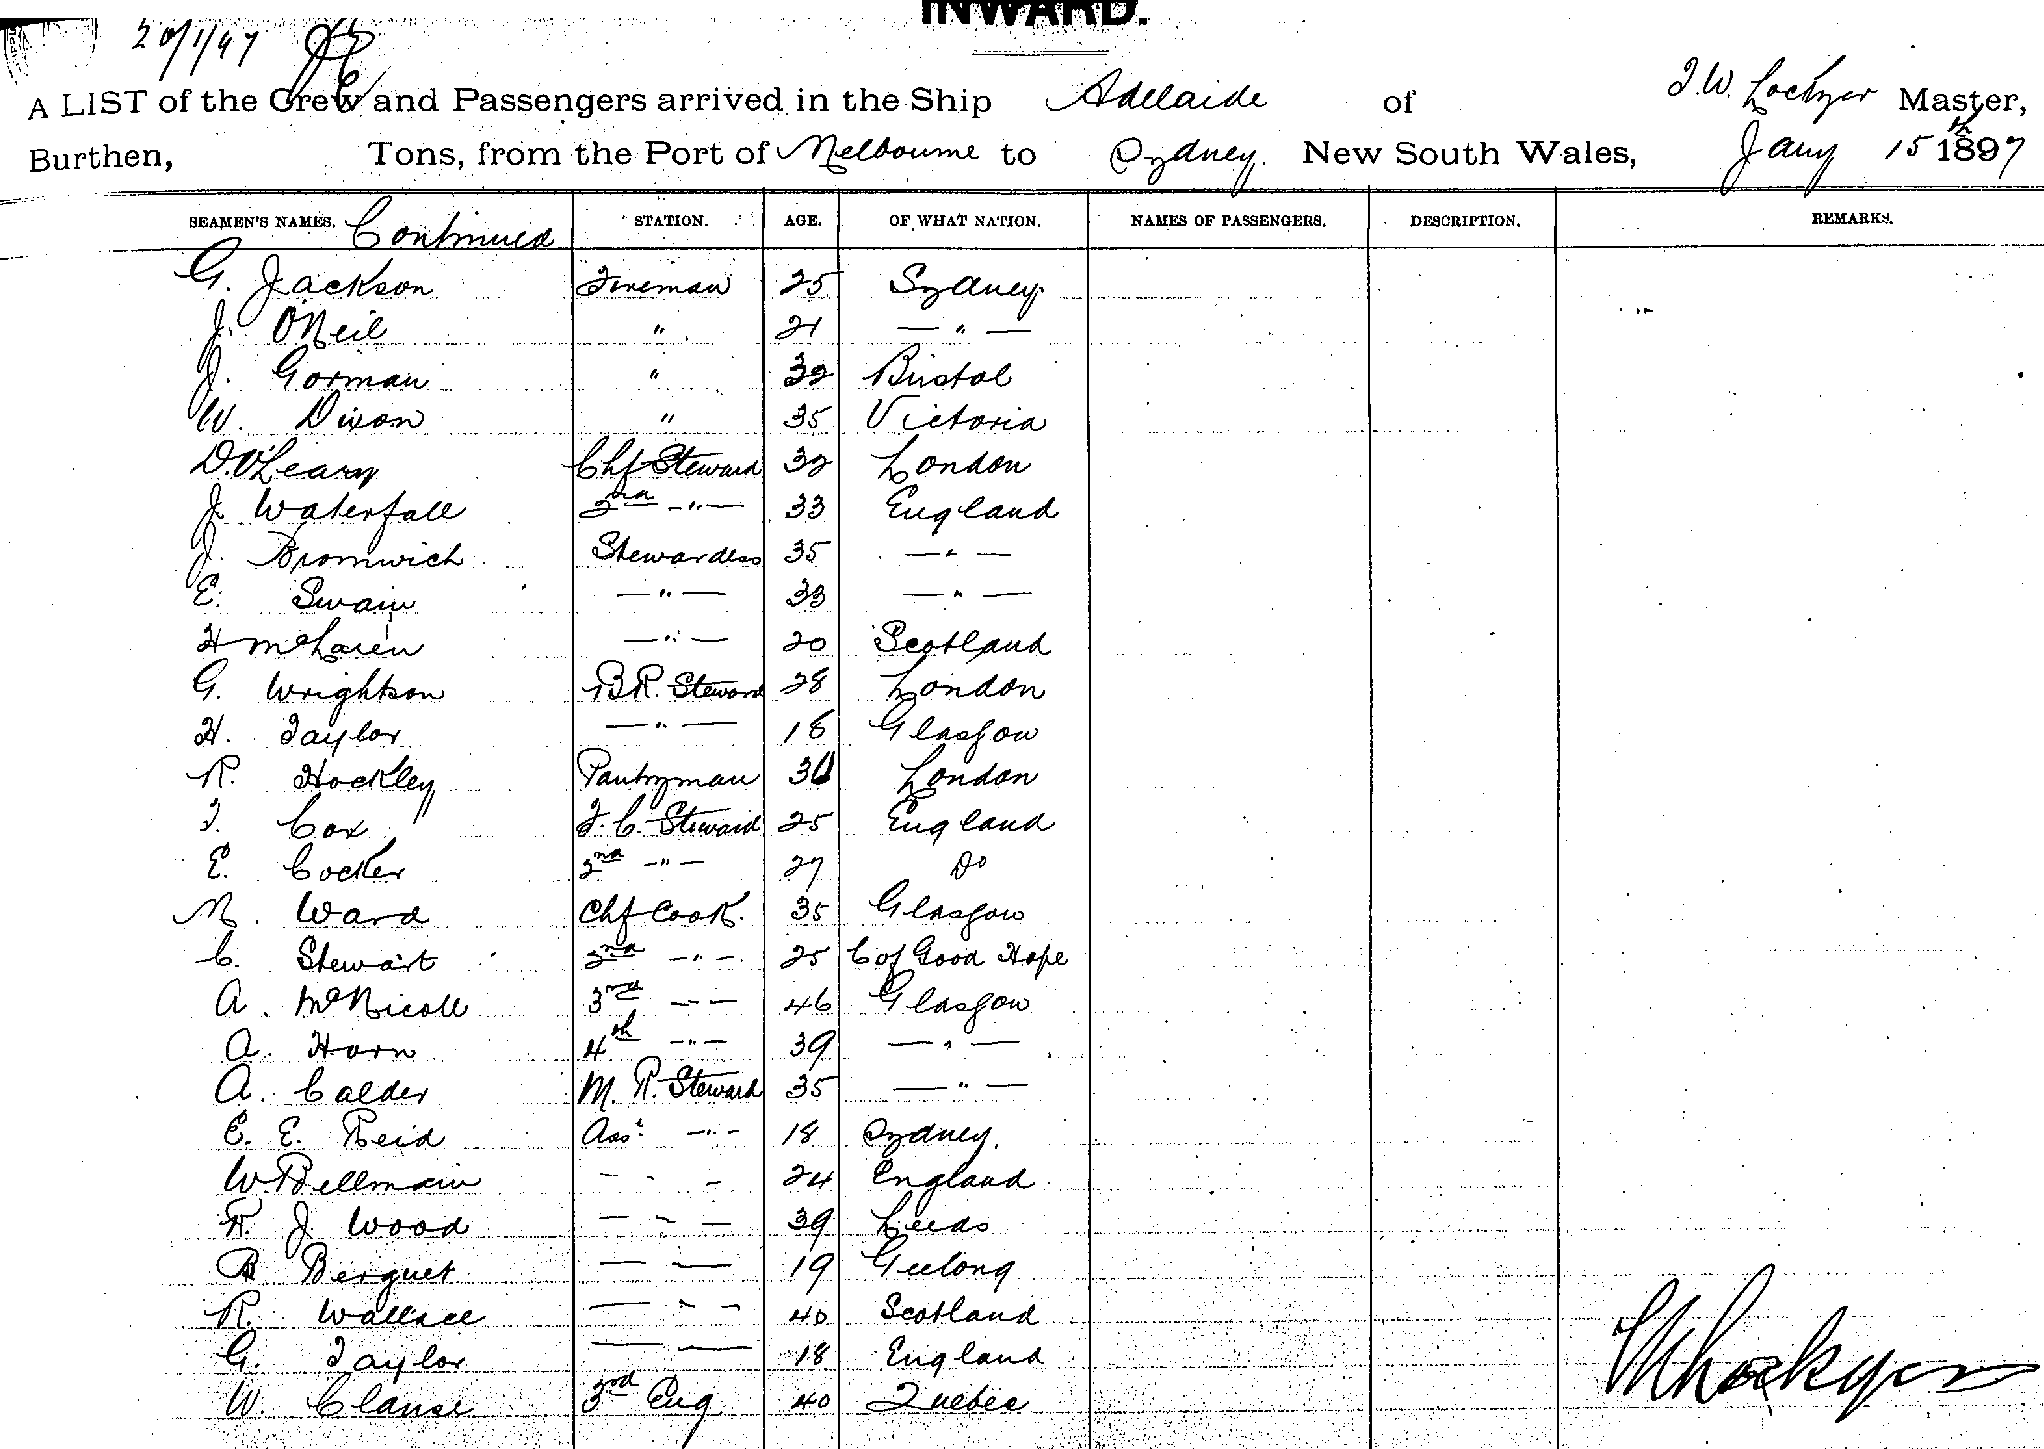 INWARD.
20/1/97
A LIST of the Crew and Passengers arrived in the Ship Adelaide of T.W. Lockyer Master,
Burthen, Tons, from the Port of Melbourne to Sydney. New South Wales, Jany 15th 1897
SEAMEN'S NAMES. Continued STATION. AGE. OF WHAT NATION. NAMES OF PASSENGERS. DESCRIPTION. REMARKS.
G. Jackson Fireman 25 Sydney
J. O'Neil " 21 — " —
J. Gorman " 32 Bristol
W. Dixon " 35 Victoria
D. O'Leary Chf Steward 32 London
J. Waterfall 2nd — " — 33 England
J. Bromwich Stewardess 35 — " —
E. Swain — " — 33 — " —
H McLaren — " — 20 Scotland
G. Wrightson B.R. Steward 28 London
H. Taylor — " — 18 Glasgow
R. Hockley Pantryman 30 London
T. Cox F. C. Steward 25 England
E. Cocker 2nd — " — 27 Do
M. Ward Chf Cook. 35 Glasgow
C. Stewart 2nd — " — 25 C of Good Hope
A. McNicoll 3rd — — 46 Glasgow
A. Horn 4th — " — 39 — " —
A. Calder M. R. Steward 35 — " —
E. E. Reid Asst — " — 18 Sydney.
W. Bellmain — " — 24 England
H. J Wood — " — 39 Leeds
B Berquet — — 19 Geelong
R. Wallace — " — 40 Scotland
G. Taylor — — 18 England
W. Clause 3rd Eng 40 Quebec
TW Lockyer